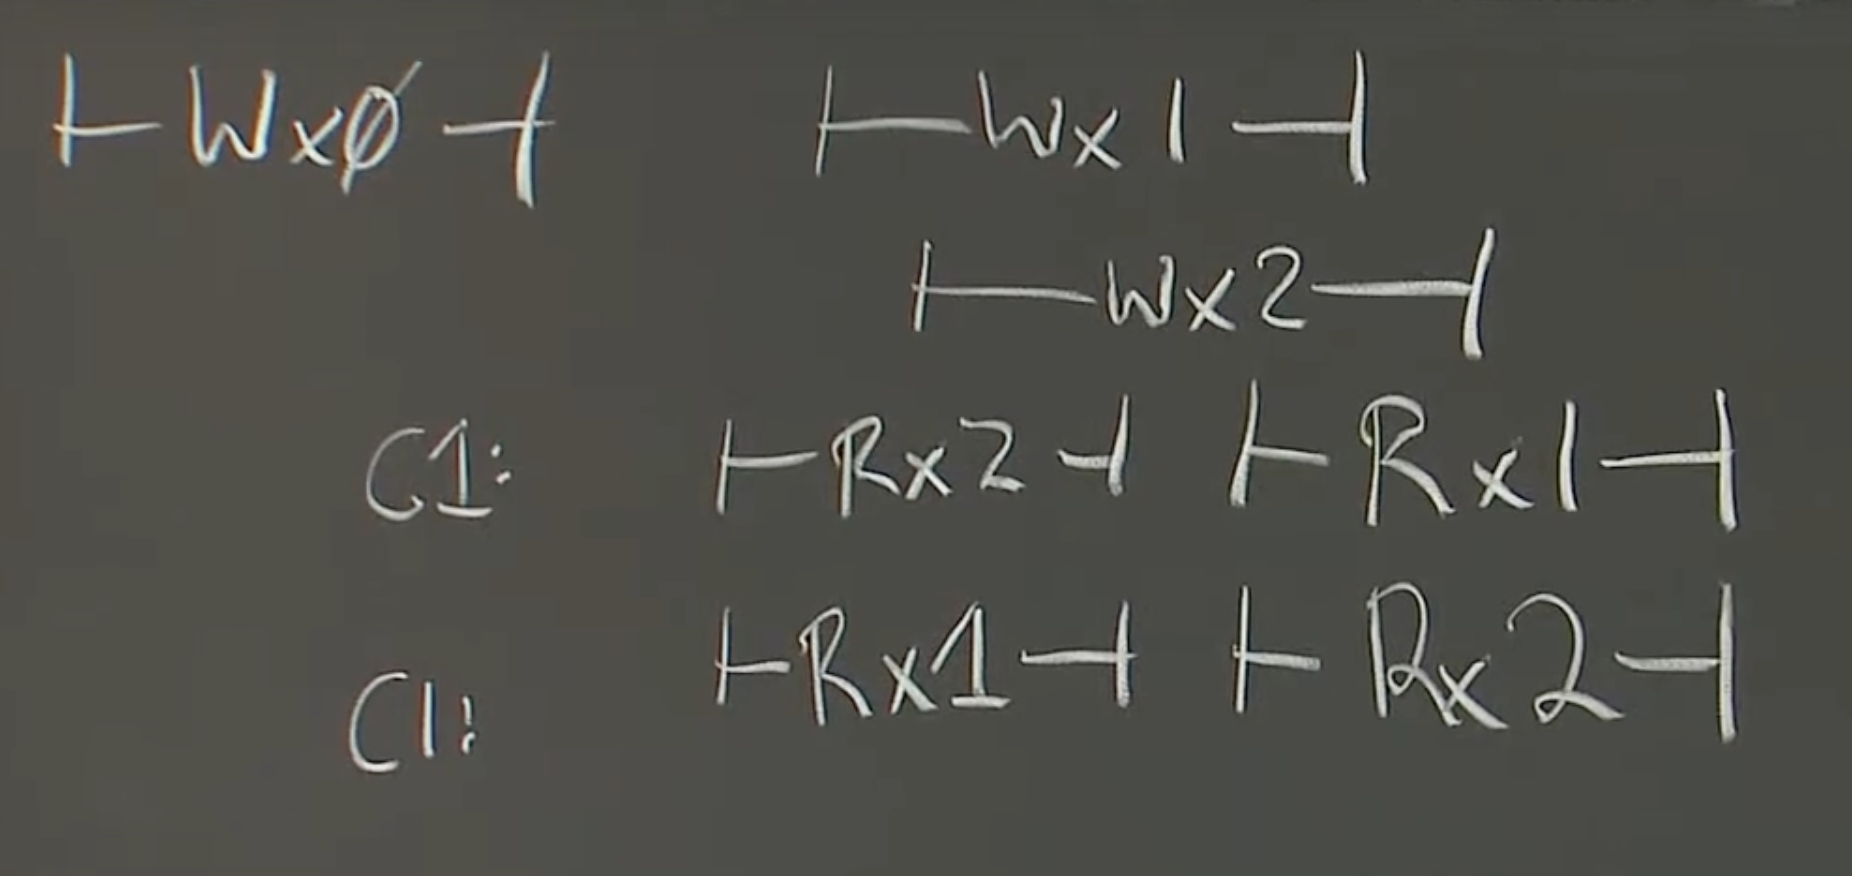 ⊢Wxø⊣ ⊢Wx1⊣
⊢Wx2⊣
C1: ⊢Rx2⊣ ⊢Rx1⊣
C1: ⊢Rx1⊣ ⊢Rx2⊣